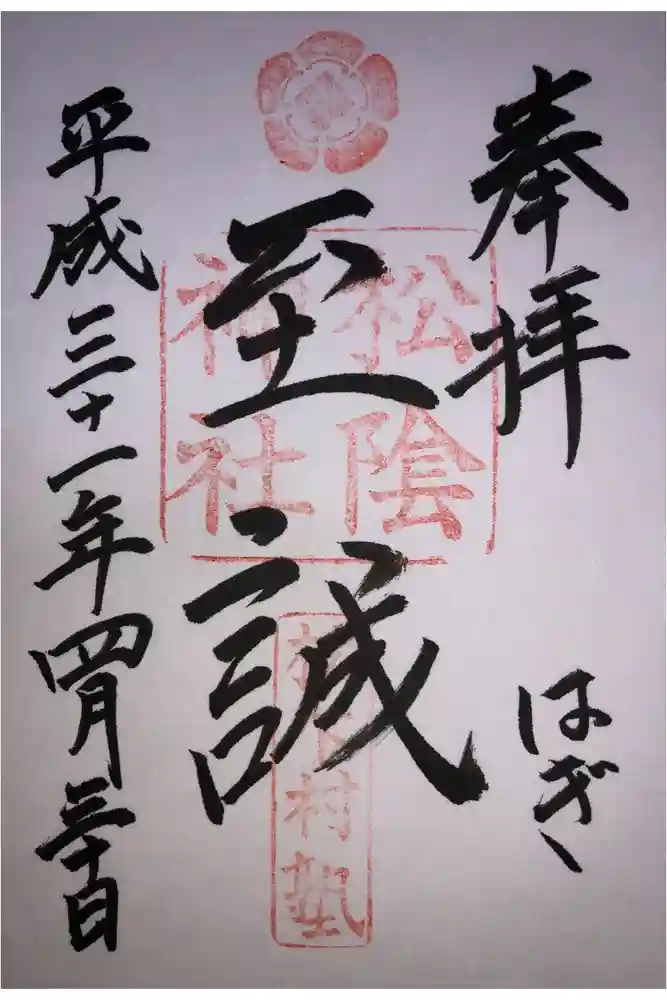 奉拝
はぎ、
至誠
松陰
神社
松下村塾
平成三十一年四月三十日